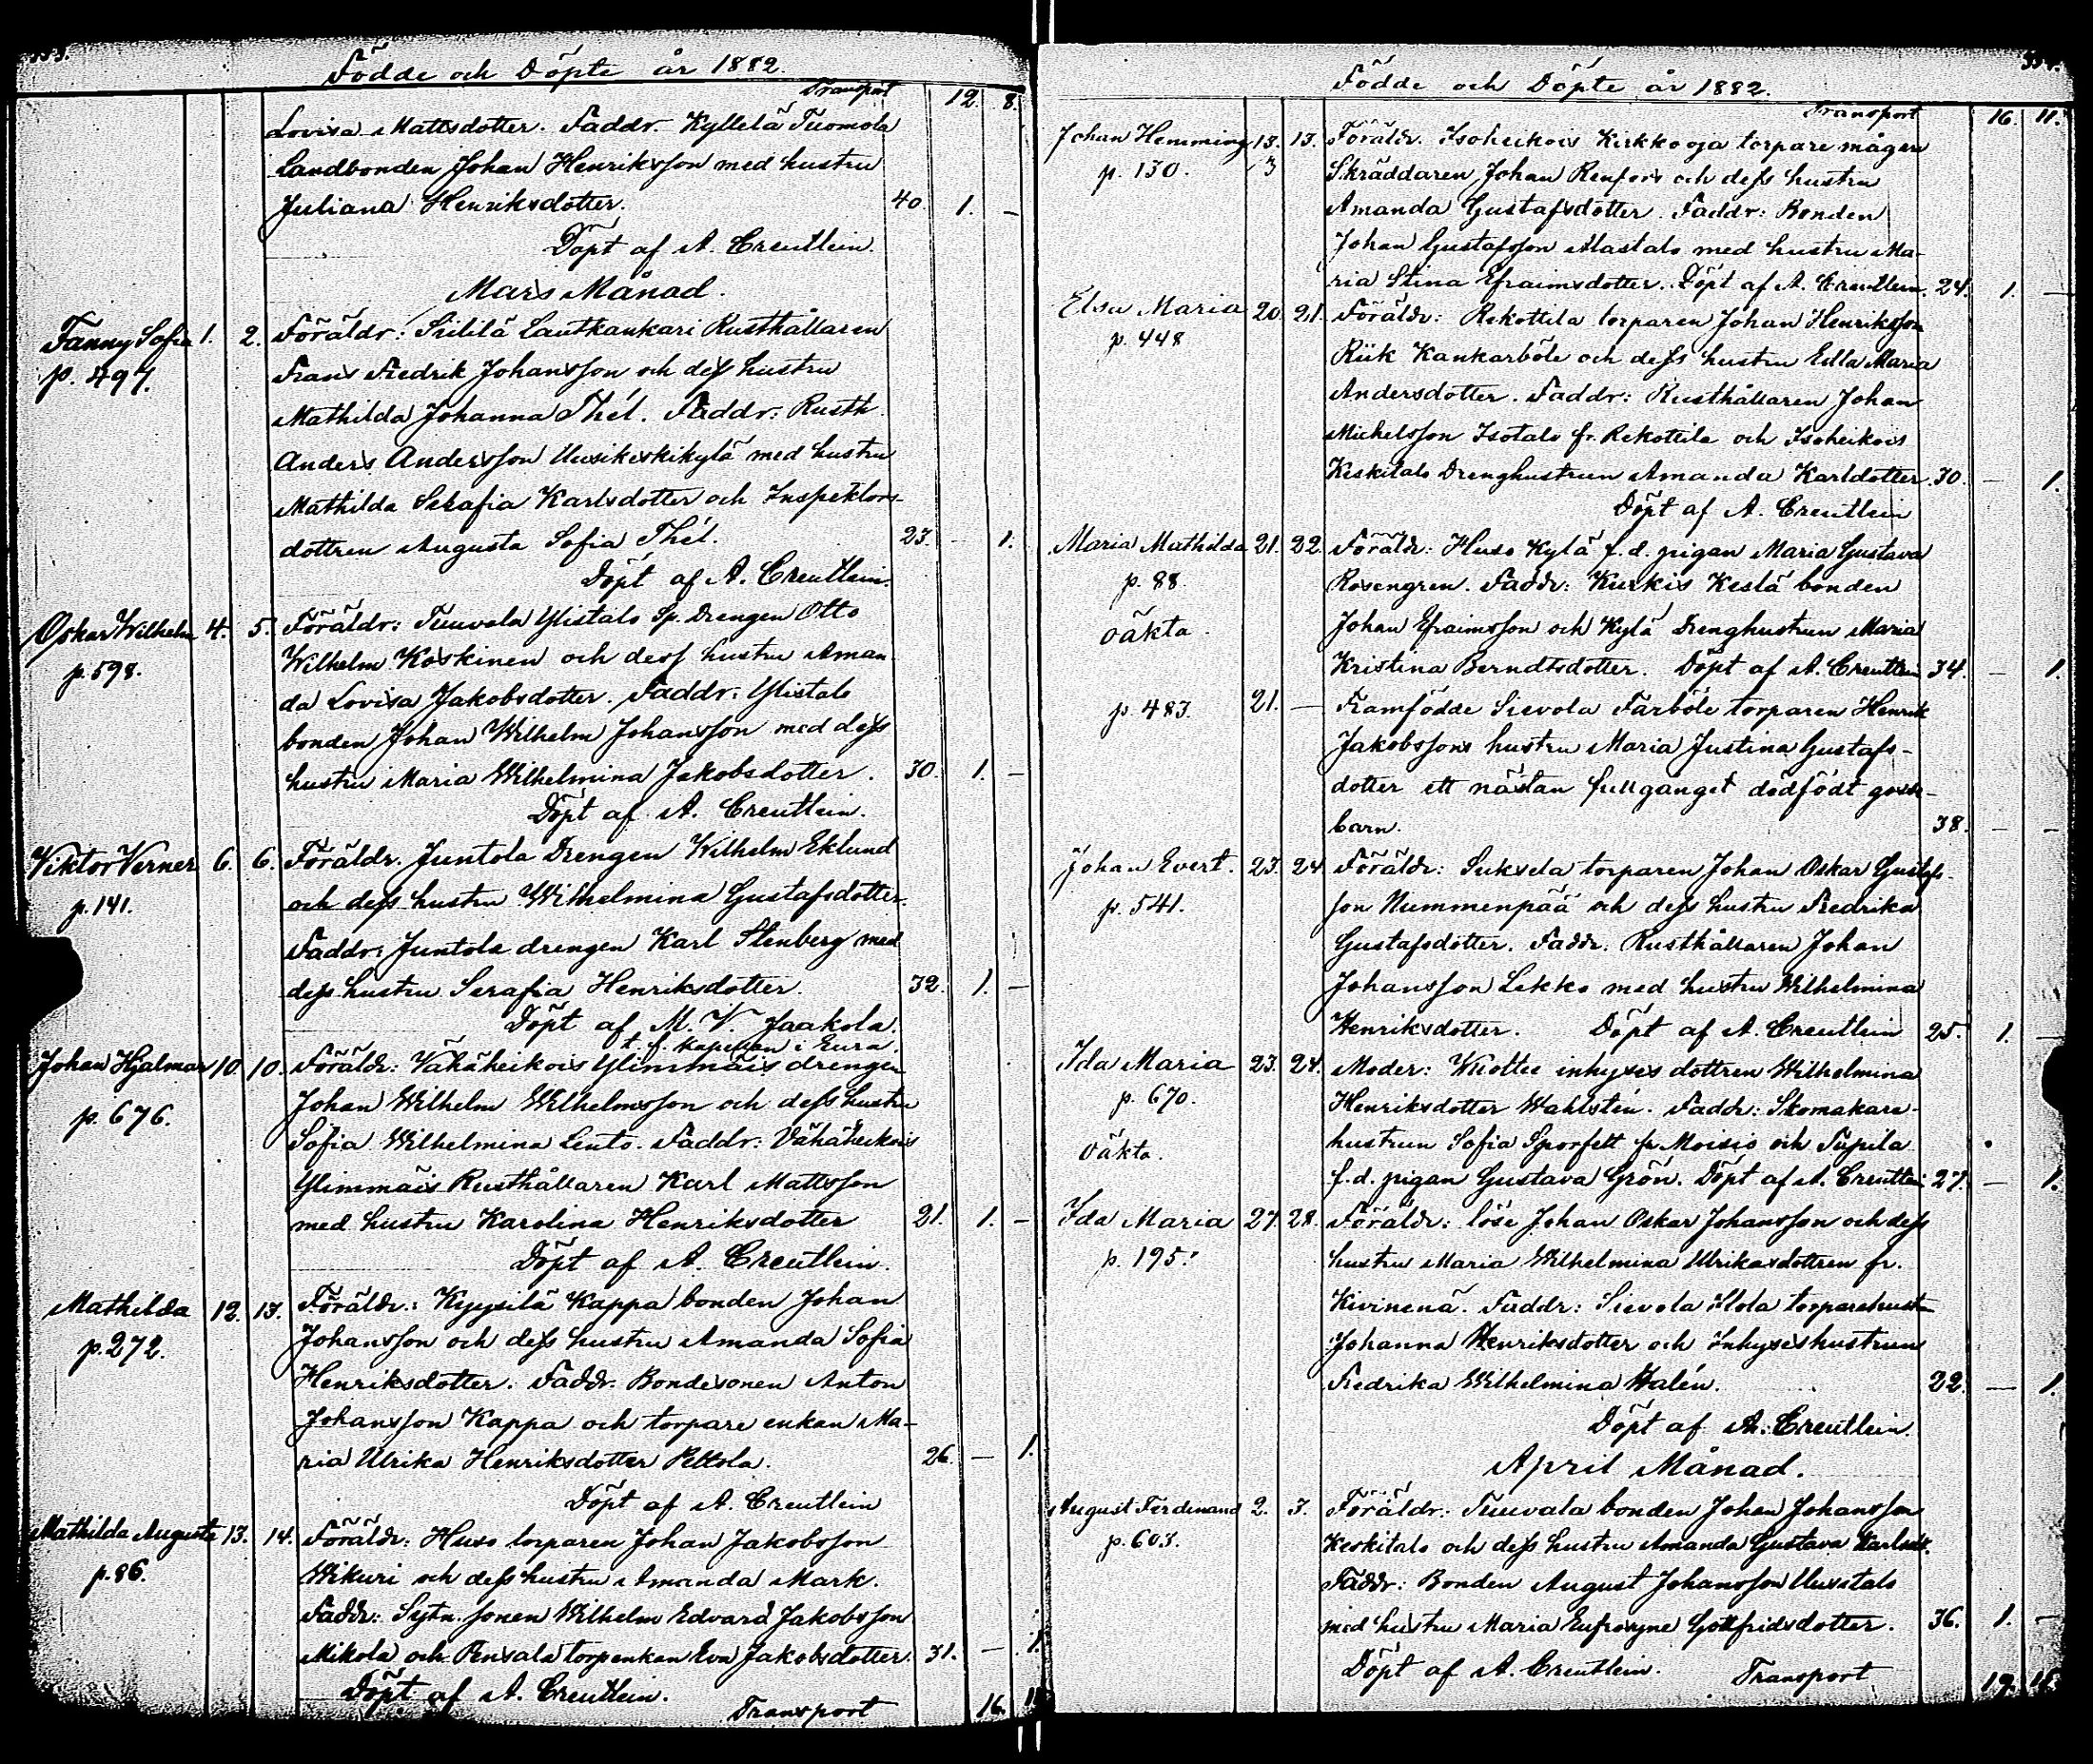 Födde och Döpte år 1882.
Transport 12. 8.
Lovisa Mattsdotter. Faddr. Kyllelä Tuomola
Landbonden Johan Henriksson med hustru
Juliana Henriksdotter. 40. 1. –
Döpt af A. Creutlein.
Mars Månad.
Fanny Sofia 1. 2. Föräldr: Siililä Lautkankari Rusthållaren
p. 497. Frans Fredrik Johansson och dess hustru
Mathilda Johanna Thél. Faddr: Rusth.
Anders Andersson Uusikeskikylä med hustru
Mathilda Serafia Karlsdotter och Inspektors-
dottren Augusta Sofia Thél. 23. – 1.
Döpt af A. Creutlein.
Oskar Wilhelm 4. 5. Föräldr: Tuuvala Ylistalo Sp. Drengen Otto
p. 598. Wilhelm Koskinen och dess hustru Aman
da Lovisa Jakobsdotter. Faddr: Ylistalo
bonden Johan Wilhelm Johansson med dess
hustru Maria Wilhelmina Jakobsdotter. 30. 1. –
Döpt af A. Creutlein.
Viktor Verner 6. 6. Föräldr. Juntola Drengen Wilhelm Eklund
p. 141. och dess hustru Wilhelmina Gustafsdotter.
Faddr: Juntola drengen Karl Stenberg med
dess hustru Serafia Henriksdotter. 32. 1. –
Döpt af M. V. Jaakola.
t. f. kapellan i Eura.
Johan Hjalmar 10. 10. Föräldr: Vähäheikois Ylimmäis drengen
p. 676. Johan Wilhelm Wilhelmsson och dess hustru
Sofia Wilhelmina Lento. Faddr: Vähäheikois
Ylimmäis Rusthållaren Karl Mattsson
med hustru Karolina Henriksdotter 21. 1. –
Döpt af A. Creutlein.
Mathilda 12. 13. Föräldr.: Kyysilä Kappa bonden Johan
p. 272. Johansson och dess hustru Amanda Sofia
Henriksdotter. Faddr. Bondesonen Anton
Johansson Kappa och torpare enkan Ma-
ria Ulrika Henriksdotter Peltola. 26. – 1.
Döpt af A. Creutlein
Mathilda Augusta 13. 14. Föräldr: Huso torparen Johan Jakobsson
p. 86. Wikuri och dess hustru Amanda Mark.
Faddr: Sytn. sonen Wilhelm Edvard Jakobsson
Mikola och Pensala torpenkan Eva Jakobsdotter. 31. – 1.
Döpt af A. Creutlein.
Transport 16. 11.
Födde och Döpte år 1882.
Transport 16. 11.
Johan Hemming 13. 13. Föräldr. Isoheikois Kirkkooja torpare mågen
p. 130. 3 Skräddaren Johan Renfors och dess hustru
Amanda Gustafsdotter. Faddr: Bonden
Johan Gustafsson Alastalo med hustru Ma-
ria Stina Efraimsdotter. Döpt af A. Creutlein. 24. 1. –
Elsa Maria 20. 21. Föräldr: Rekottila torparen Johan Henriksson
p. 448 Riik Kankarböle och dess hustru Edla Maria
Andersdotter. Faddr: Rusthållaren Johan
Michelsson Isotalo fr. Rekottila och Isoheikois
Keskitalo Drenghustrun Amanda Karldotter. 30. – 1.
Döpt af A. Creutlein
Maria Mathilda 21. 22. Föräldr: Huso Kylä f. d. pigan Maria Gustava
p. 88. Rosengren. Faddr: Kurkis Keslä bonden
oäkta. Johan Efraimsson och Kylä Drenghustrun Maria
Kristina Berndtsdotter. Döpt af A. Creutlein 34. – 1.
p. 483. 21. – Framfödde Sievola Färböle torparen Henrik
Jakobssons hustru Maria Justina Gustafs-
dotter ett nästan fullgånget dödfödt gosse-
barn. 38. – –
Johan Evert. 23. 24 Föräldr: Suksela torparen Johan Oskar Gustafs-
p. 541. son Nummenpää och dess hustru Fredrika
Gustafsdotter. Faddr. Rusthållaren Johan
Johansson Lekko med hustru Wilhelmina
Henriksdotter. Döpt af A. Creutlein 25. 1. –
Ida Maria 23. 24. Moder: Wuolle inhyses dottren Wilhelmina
p. 670. Henriksdotter Wahlstén. Faddr: Skomakare-
oäkta. hustrun Sofia Sporfelt fr Moisio och Tupila
f. d. pigan Gustava Grön. Döpt af A. Creutlein 27. – 1.
Ida Maria 27. 28. Föräldr: löse Johan Oskar Johansson och dess
p. 195. hustru Maria Wilhelmina Ulrikasdottren fr.
Kivinenä. Faddr: Sievola Ilola torparehustru
Johanna Henriksdotter och Inhyseshustrun
Fredrika Wilhelmina Halén. 22. – 1.
Döpt af A. Creutlein.
April Månad.
August Ferdinand 2. 3. Föräldr. Tuuvala bonden Johan Johansson
p. 603. Keskitalo och dess hustru Amanda Gustava Karlsdt.
Faddr: Bonden August Johansson Uusitalo
med hustru Maria Eufrosyne Gottfridsdotter. 36. 1. –
Döpt af A. Creutlein. Transport 19. 15.